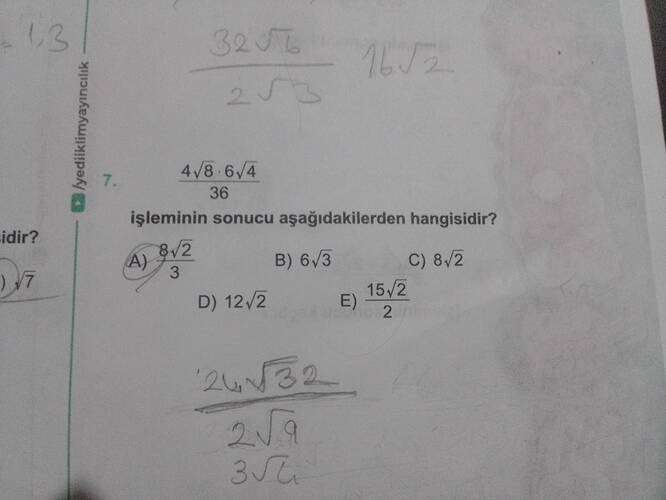 = 1,3
32√6
2√3
16√2
/yediiklimyayıncılık
7.
4√8 · 6√4
36
işleminin sonucu aşağıdakilerden hangisidir?
A) 8√2/3 B) 6√3 C) 8√2
D) 12√2 E) 15√2/2
sidir?
) √7
24√32
2√9
3√4